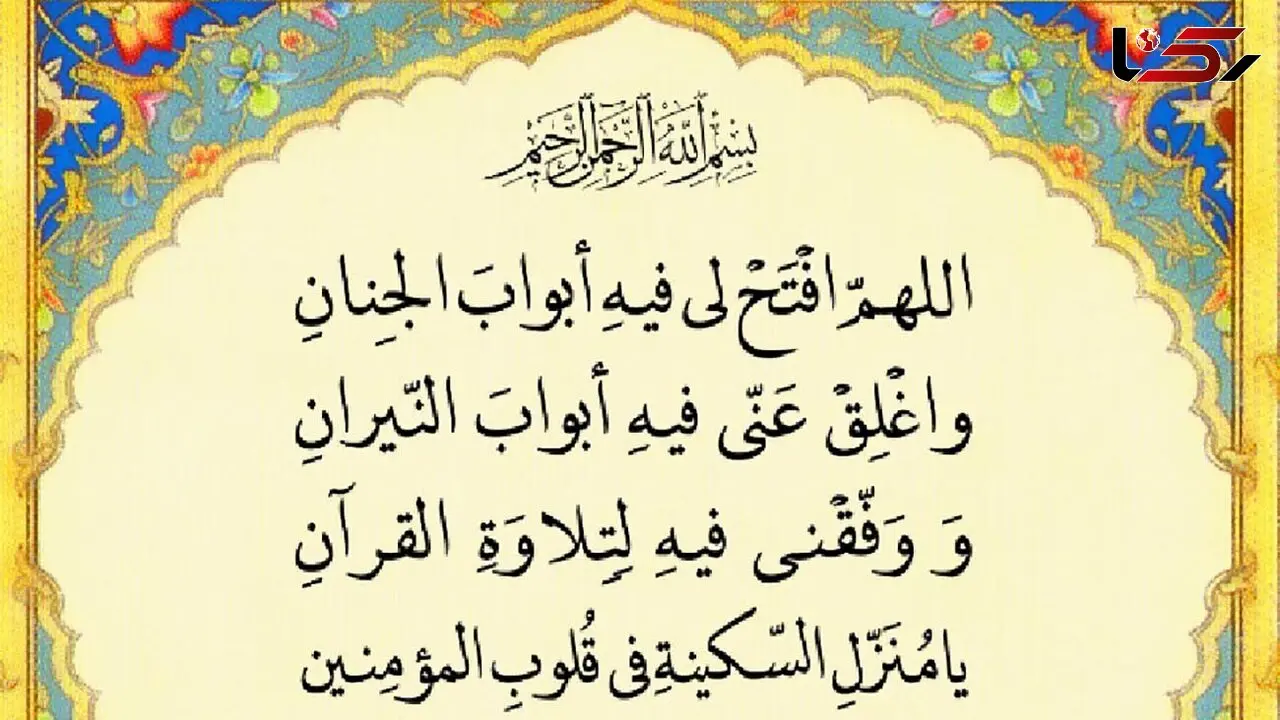 رکنا
بِسْمِ اللَّهِ الرَّحْمَنِ الرَّحِيمِ
اللهمّ افْتَحْ لی فیهِ أبوابَ الجِنانِ
واغْلِقْ عَنّی فیهِ أبوابَ النّیرانِ
وَ وَفّقْنی فیهِ لِتِلاوَةِ القرآنِ
یامُنَزّلِ السّکینةِ فی قُلوبِ المؤمِنین